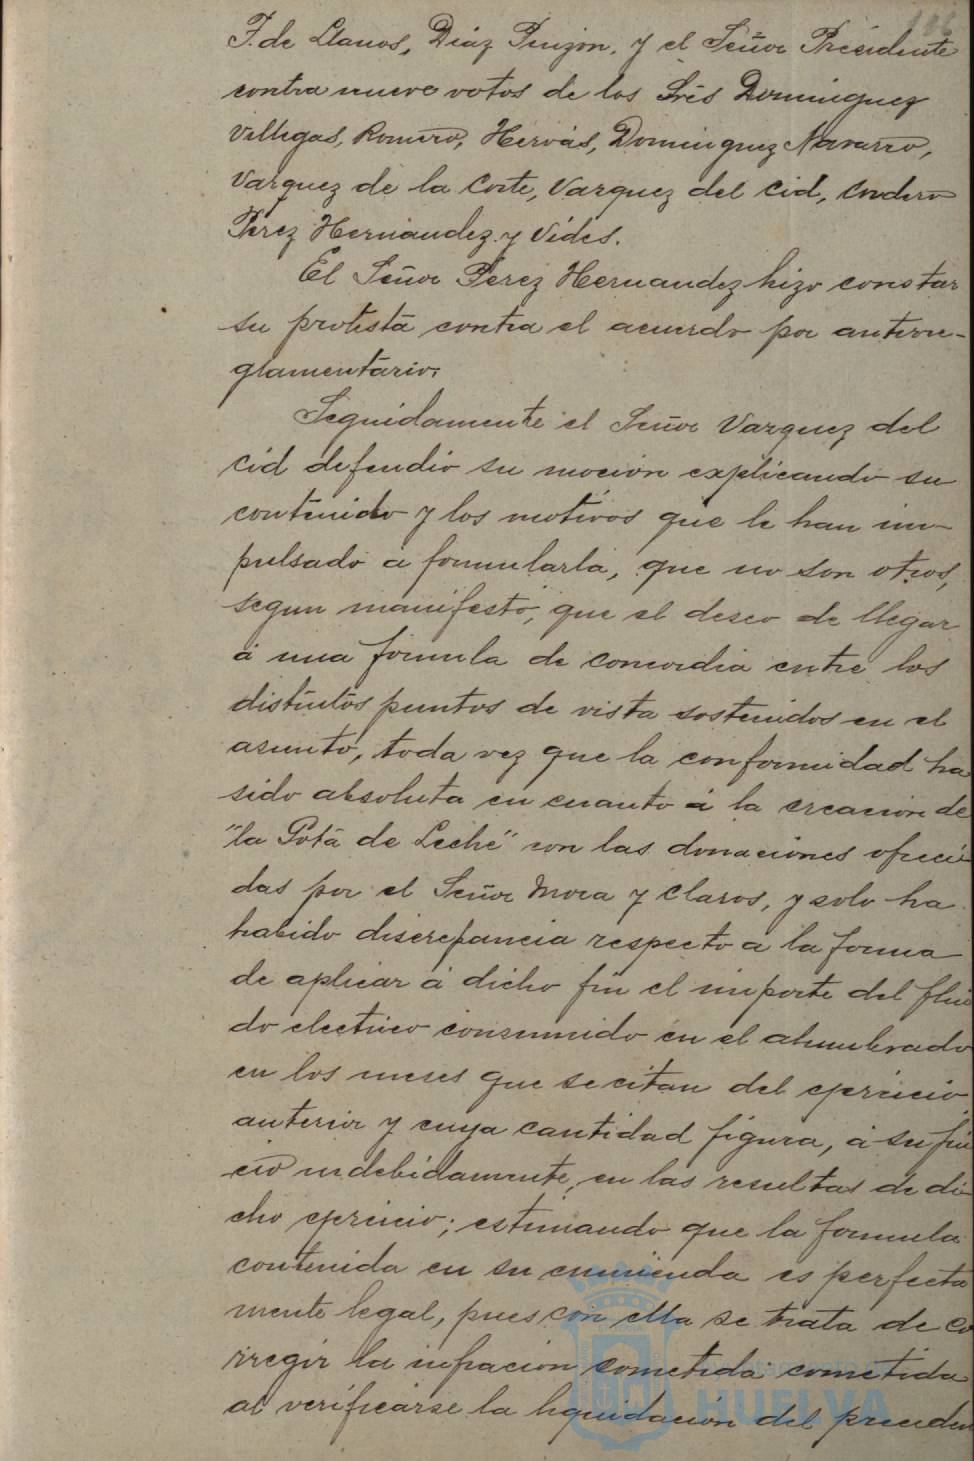 F. de Llanos, Díaz Pinzón, y el Señor Presidente
contra nueve votos de los Srēs Dominguez
Villegas, Romero, Hervás, Dominguez Navarro,
Vazquez de la Corte, Vazquez del Cid, Cordero
Perez Hernández y Vides.
El Señor Perez Hernandez hizo constar
su protesta contra el acuerdo por antirre-
glamentario.
Seguidamente el Señor Vazquez del
Cid defendió su moción explicando su
contenido y los motivos que le han im-
pulsado a formularla, que no son otros,
segun manifestó, que el deseo de llegar
á una fórmula de concordia entre los
distintos puntos de vista sostenidos en el
asunto, toda vez que la conformidad ha
sido absoluta en cuanto á la creación de
"la Gota de Leche" con las donaciones ofreci-
das por el Señor Mora y Claros, y solo ha
habido discrepancia respecto a la forma
de aplicar á dicho fin el importe del flui
do electrico consumido en el alumbrado
en los meses que se citan del ejercicio
anterior y cuya cantidad figura, á su jui
cio indebidamente, en las resultas de di-
cho ejercicio; estimando que la formula
contenida en su enmienda es perfecta
mente legal, pues con ella se trata de co
rregir la infracion cometida cometida
al verificarse la liquidación del preceden
HUELVA